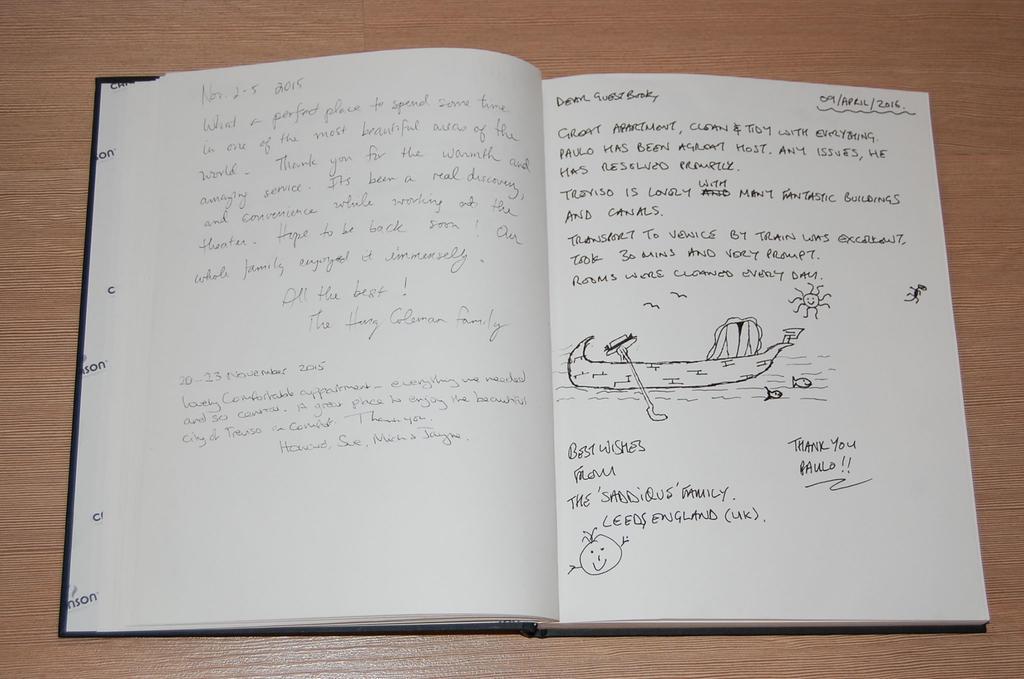 Nov. 2-5 2015
What a perfect place to spend some time
in one of the most beautiful areas of the
world. Thank you for the warmth and
amazing service. Its been a real discovery,
and convenience while working at the
theater. Hope to be back soon! Our
whole family enjoyed it immensely.
All the best!
The Coleman family
20-23 November 2015
Lovely comfortable appartment - everything we needed
and so central. A great place to enjoy the beautiful
city of Treviso in comfort. Thank you.
Howard, Sue,
DEAR GUESTBOOK,
09/APRIL/2016.
GREAT APARTMENT, CLEAN & TIDY WITH EVERYTHING.
PAULO HAS BEEN A GREAT HOST. ANY ISSUES, HE
HAS RESOLVED PROMPTLY.
TREVISO IS LOVELY WITH MANY FANTASTIC BUILDINGS
AND CANALS.
TRANSPORT TO VENICE BY TRAIN WAS EXCELLENT.
TOOK 30 MINS AND VERY PROMPT.
ROOMS WERE CLEANED EVERY DAY.
BEST WISHES
FROM
THE 'SADDIQUS' FAMILY.
LEEDS, ENGLAND (UK).
THANK YOU
PAULO!!